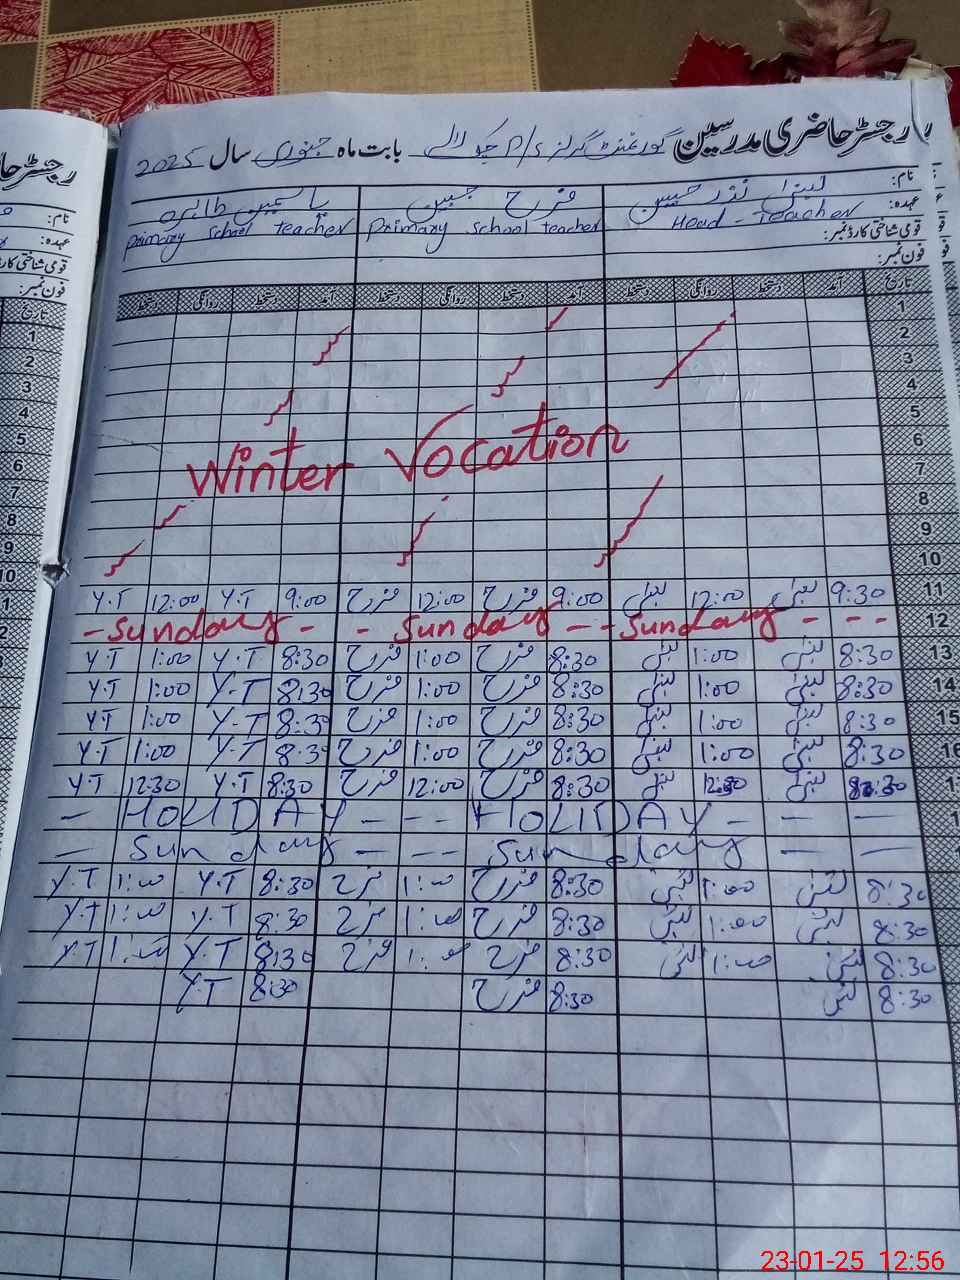 رجسٹر حاضری مدرسین گورنمنٹ گرلز P/S بابت ماہ جنوری سال 2025
نام: لبنیٰ نذر حسین فرح جبین یاسمین طاہرہ
عہدہ: Head-Teacher Primary School teacher Primary School teacher
قومی شناختی کارڈ نمبر:
فون نمبر:
تاریخ آمد دستخط روانگی دستخط آمد دستخط روانگی دستخط آمد دستخط روانگی دستخط
1
2
3
4
5
6
Winter Vocation
7
8
9
10
11 9:30 لبنیٰ 12:00 لبنیٰ 9:00 فرح 12:00 فرح 9:00 Y.T 12:00 Y.T
12 - Sunday - - Sunday - - - Sunday - - -
13 8:30 لبنیٰ 1:00 لبنیٰ 8:30 فرح 1:00 فرح 8:30 Y.T 1:00 Y.T
14 8:30 لبنیٰ 1:00 لبنیٰ 8:30 فرح 1:00 فرح 8:30 Y-T 1:00 Y.T
15 8:30 لبنیٰ 1:00 لبنیٰ 8:30 فرح 1:00 فرح 8:30 Y-T 1:00 Y.T
16 8:30 لبنیٰ 1:00 لبنیٰ 8:30 فرح 1:00 فرح 8:30 Y.T 1:00 Y.T
8:30 لبنیٰ 12:30 لبنیٰ 8:30 فرح 12:00 فرح 8:30 Y.T 12:30 Y.T
- HOLIDAY - - - HOLIDAY - - -
- Sunday - - - Sunday - -
8:30 لبنیٰ 1:00 لبنیٰ 8:30 فرح 1:00 فرح 8:30 Y.T 1:00 Y.T
8:30 لبنیٰ 1:00 لبنیٰ 8:30 فرح 1:00 فرح 8:30 Y.T 1:00 Y.T
8:30 لبنیٰ 1:00 لبنیٰ 8:30 فرح 1:00 فرح 8:30 Y.T 1:00 Y.T
8:30 لبنیٰ 8:30 فرح 8:30 Y.T
رجسٹر حا
نام:
عہدہ:
قومی شناختی کارڈ
فون نمبر:
تاریخ
1
2
3
4
5
6
7
8
9
10
23-01-25 12:56